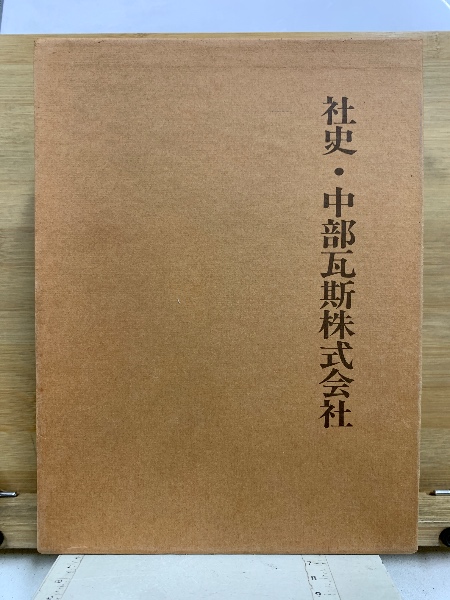 社史・中部瓦斯株式会社